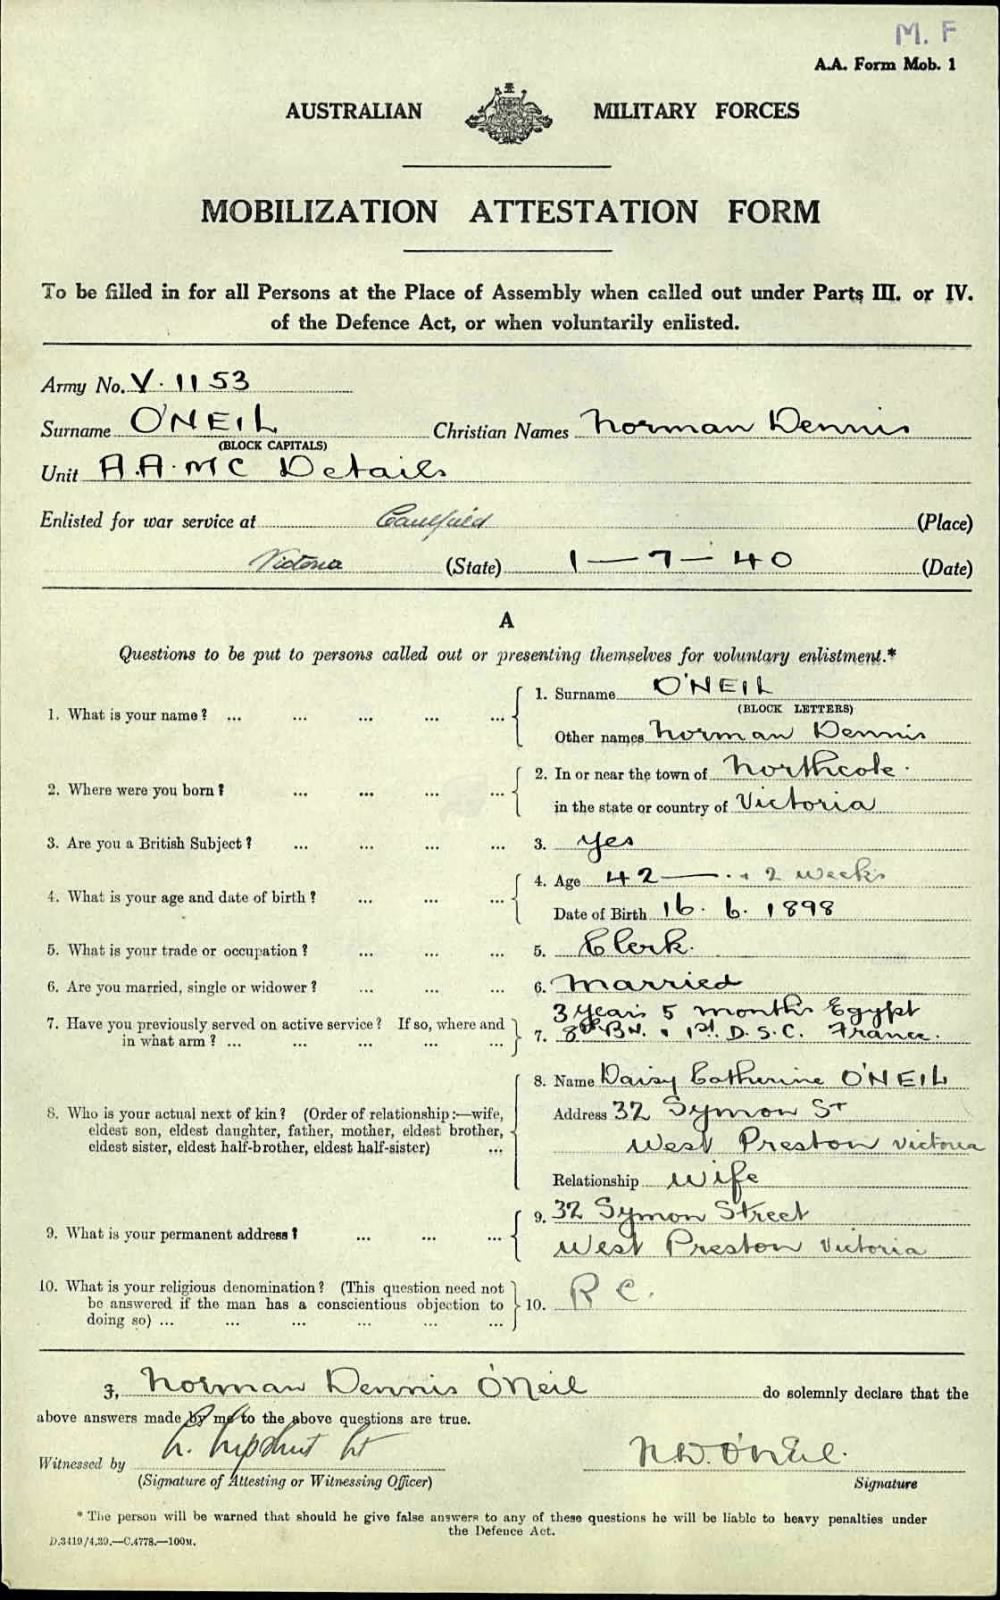 M. F
A.A. Form Mob. 1
AUSTRALIAN MILITARY FORCES
MOBILIZATION ATTESTATION FORM
To be filled in for all Persons at the Place of Assembly when called out under Parts III. or IV.
of the Defence Act, or when voluntarily enlisted.
Army No. V. 1153
Surname O'NEIL Christian Names Norman Dennis
(BLOCK CAPITALS)
Unit A.A.MC Details
Enlisted for war service at Caulfield (Place)
Victoria (State) 1-7-40 (Date)
A
Questions to be put to persons called out or presenting themselves for voluntary enlistment.*
1. What is your name? ... ... ... ... ... 1. Surname O'NEIL
(BLOCK LETTERS)
Other names Norman Dennis
2. Where were you born? ... ... ... ... 2. In or near the town of Northcote.
in the state or country of Victoria
3. Are you a British Subject? ... ... ... ... 3. yes
4. What is your age and date of birth? ... ... ... 4. Age 42 — . + 2 weeks
Date of Birth 16. 6. 1898
5. What is your trade or occupation? ... ... ... 5. Clerk.
6. Are you married, single or widower? ... ... ... 6. Married
7. Have you previously served on active service? If so, where and in what arm? ... ... ... ... ... 7. 3 years 5 months Egypt
8th BN. & 1st D.S.C. France.
8. Who is your actual next of kin? (Order of relationship:—wife,
eldest son, eldest daughter, father, mother, eldest brother,
eldest sister, eldest half-brother, eldest half-sister) ...
8. Name Daisy Catherine O'NEIL
Address 32 Symon St
West Preston Victoria
Relationship Wife
9. What is your permanent address? ... ... ... 9. 32 Symon Street
West Preston Victoria
10. What is your religious denomination? (This question need not
be answered if the man has a conscientious objection to
doing so) ... ... ... ... ... ...
10. R C.
I, Norman Dennis O'Neil do solemnly declare that the
above answers made by me to the above questions are true.
Witnessed by Lt N.D. O'Neil.
(Signature of Attesting or Witnessing Officer) Signature
* The person will be warned that should he give false answers to any of these questions he will be liable to heavy penalties under
the Defence Act.
D.3419/4.39.—C.4778.—100M.